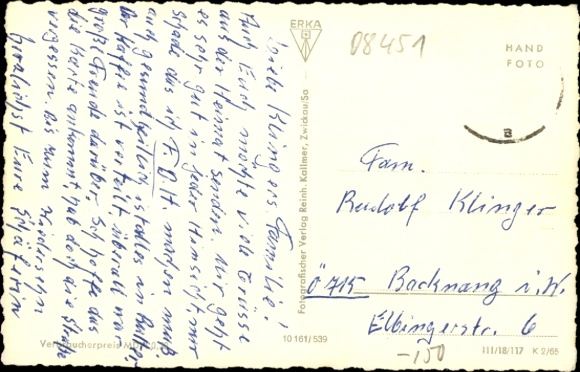 Liebe Klingers Familie!
Auch Euch möchte viele Grüsse
aus der Heimat senden. Mir geht
es sehr gut in jeder Hinsicht, nur
schade das ich F.D.H. machen muß
auch gesundheitlich ist alles in Butter
Der Kaffee ist verteilt überall war
große Freude darüber. Ich hoffe das
die Karte ankommt, hab doch die Straße
vergessen. Bis zum Wiedersehn
herzlichst Eure
Verbraucherpreis M
ERKA
Fotografischer Verlag Reinh. Kallmer, Zwickau/Sa
10 161/539
08451
HAND
FOTO
Fam.
Rudolf Klinger
715 Backnang i.W.
Elbingerstr. 6
-150
III/18/117 K 2/65